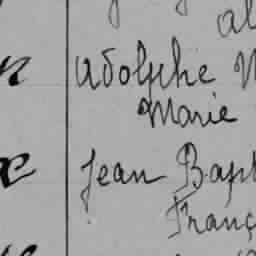 al
Adolphe M
Marie
Jean Bapt
Franç